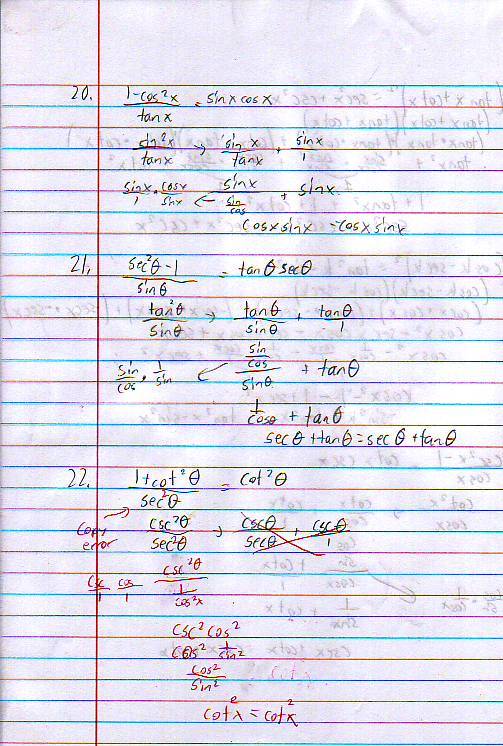 20. 1-cos²x / tanx = sinx cosx
sin²x / tanx → sinx / tanx + sinx / 1
sinx / 1 · cosx / sinx ← sinx / (sin / cos) + sinx
cosx sinx = cosx sinx
21. sec²θ-1 / sinθ = tanθ secθ
tan²θ / sinθ → tanθ / sinθ + tanθ / 1
sin / cos · 1 / sin ← (sin / cos) / sinθ + tanθ
1 / cosθ + tanθ
secθ + tanθ = secθ + tanθ
22. 1+cot²θ / sec²θ = cot²θ
Copy error → csc²θ / sec²θ → cscθ / secθ + cscθ / 1
csc / 1 cos / 1 csc²θ / (1 / cos²x)
csc² cos²
cos² 1 / sin²
cos² / sin²
cot²x = cot²x